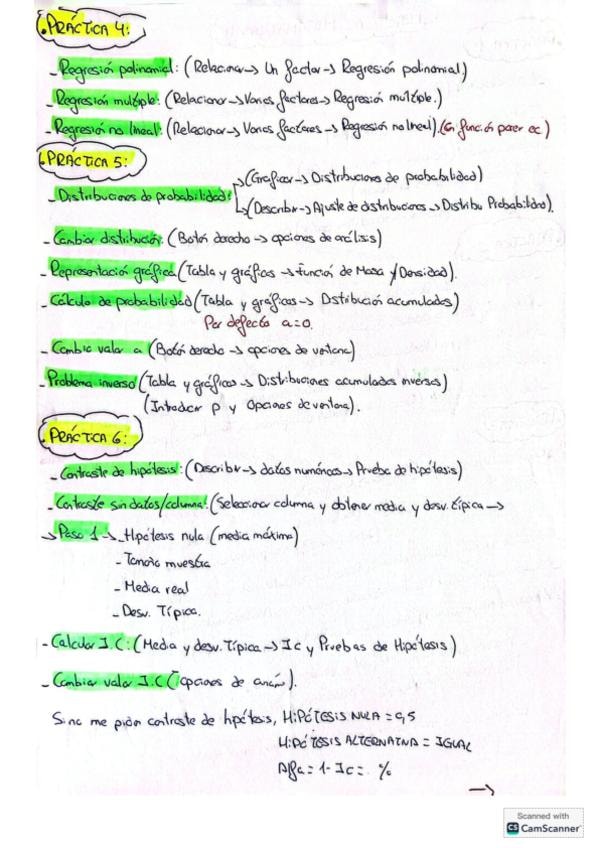 PRÁCTICA 4:
- Regresión polinomial: (Relacionar → Un factor → Regresión polinomial)
- Regresión multiple: (Relacionar → Varios factores → Regresión multiple.)
- Regresió no lineal: (Relacionar → Varios factores → Regresión no lineal). (En función param etc)
PRÁCTICA 5:
→ (Graficar → Distribuciones de probabilidad)
- Distribuciones de probabilidad:
↳ (Describir → Ajuste de distribuciones → Distribu Probabilidad).
- Cambiar distribución: (Botón derecho → opciones de análisis)
- Representación gráfica (Tabla y gráficas → función de Masa y/Densidad).
- Cálculo de probabilidad (Tabla y gráficas → Dstribución acumulados)
Por defecto a=0.
- Cambio valor a (Botón derecho → opciones de ventana)
- Problema inverso (Tabla y gráficas → Distribuciones acumuladas inversas)
(Introducir p y Opciones de ventana).
PRÁCTICA 6:
- Contraste de hipótesis: (Describir → datos numéricos → Prueba de hipótesis)
- Contraste sin datos/columna: (Seleccionar columna y obtener media y desv. típica →
→ Paso 1 → - Hipótesis nula (media máxima)
- Tamaño muestra
- Media real
- Desv. Típica.
- Calcular I.C: (Media y desv. Típica → Ic y Pruebas de Hipótesis)
- Cambiar valor I.C (opciones de).
Si no me piden contraste de hipótesis, HIPÓTESIS NULA = 0,5
HIPÓTESIS ALTERNATIVA = IGUAL
Alfa = 1 - Ic = %
→
Scanned with
CS CamScanner